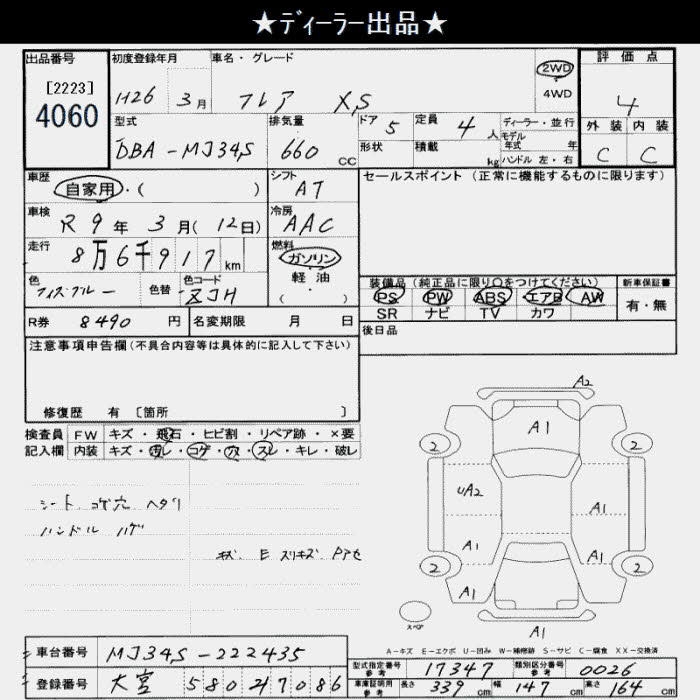 ★ディーラー出品★
出品番号 初度登録年月 車名・グレード 評価点
[2223] 4060 H26 3月 フレア XS 2WD 4WD 4
型式 排気量 ドア 5 定員 4人 ディーラー・並行 外装 内装
モデル年式 年
DBA-MJ34S 660 CC 形状 積載 kg ハンドル 左・右 C C
車歴 自家用・( ) シフト AT セールスポイント (正常に機能するものに限ります)
車検 R9年 3月(12日) 冷房 AAC
走行 8万6千917km 燃料 ガソリン
軽油
( )
色 色替 色コード ZJH
装備品(純正品に限り○をつけてください) 新車保証書
PS PW ABS エアB AW 有・無
SR ナビ TV カワ
R券 8490円 名変期限 月 日
後日品
注意事項申告欄(不具合内容等は具体的に記入して下さい)
修復歴 有 [箇所 ]
検査員 FW キズ・飛石・ヒビ割・リペア跡・×要
記入欄 内装 キズ・汚レ・コゲ・穴・スレ・キレ・破レ
シート コゲ穴 ヘタリ
ハンドル ハゲ
キズ E スリキズ Pアセ
A2
A1
2 2
UA2
A1
A1 A1
2 2
A1
スペア
A1
A-キズ E-エクボ U-凹み W-補修跡 S-サビ C-腐食 XX-交換済
車台番号 MJ34S-222435
登録番号 大宮 580 ｲ7086
型式指定番号 参考 17347 類別区分番号 参考 0026
車庫証明用 参考 長さ 339cm 幅 147cm 高さ 164cm